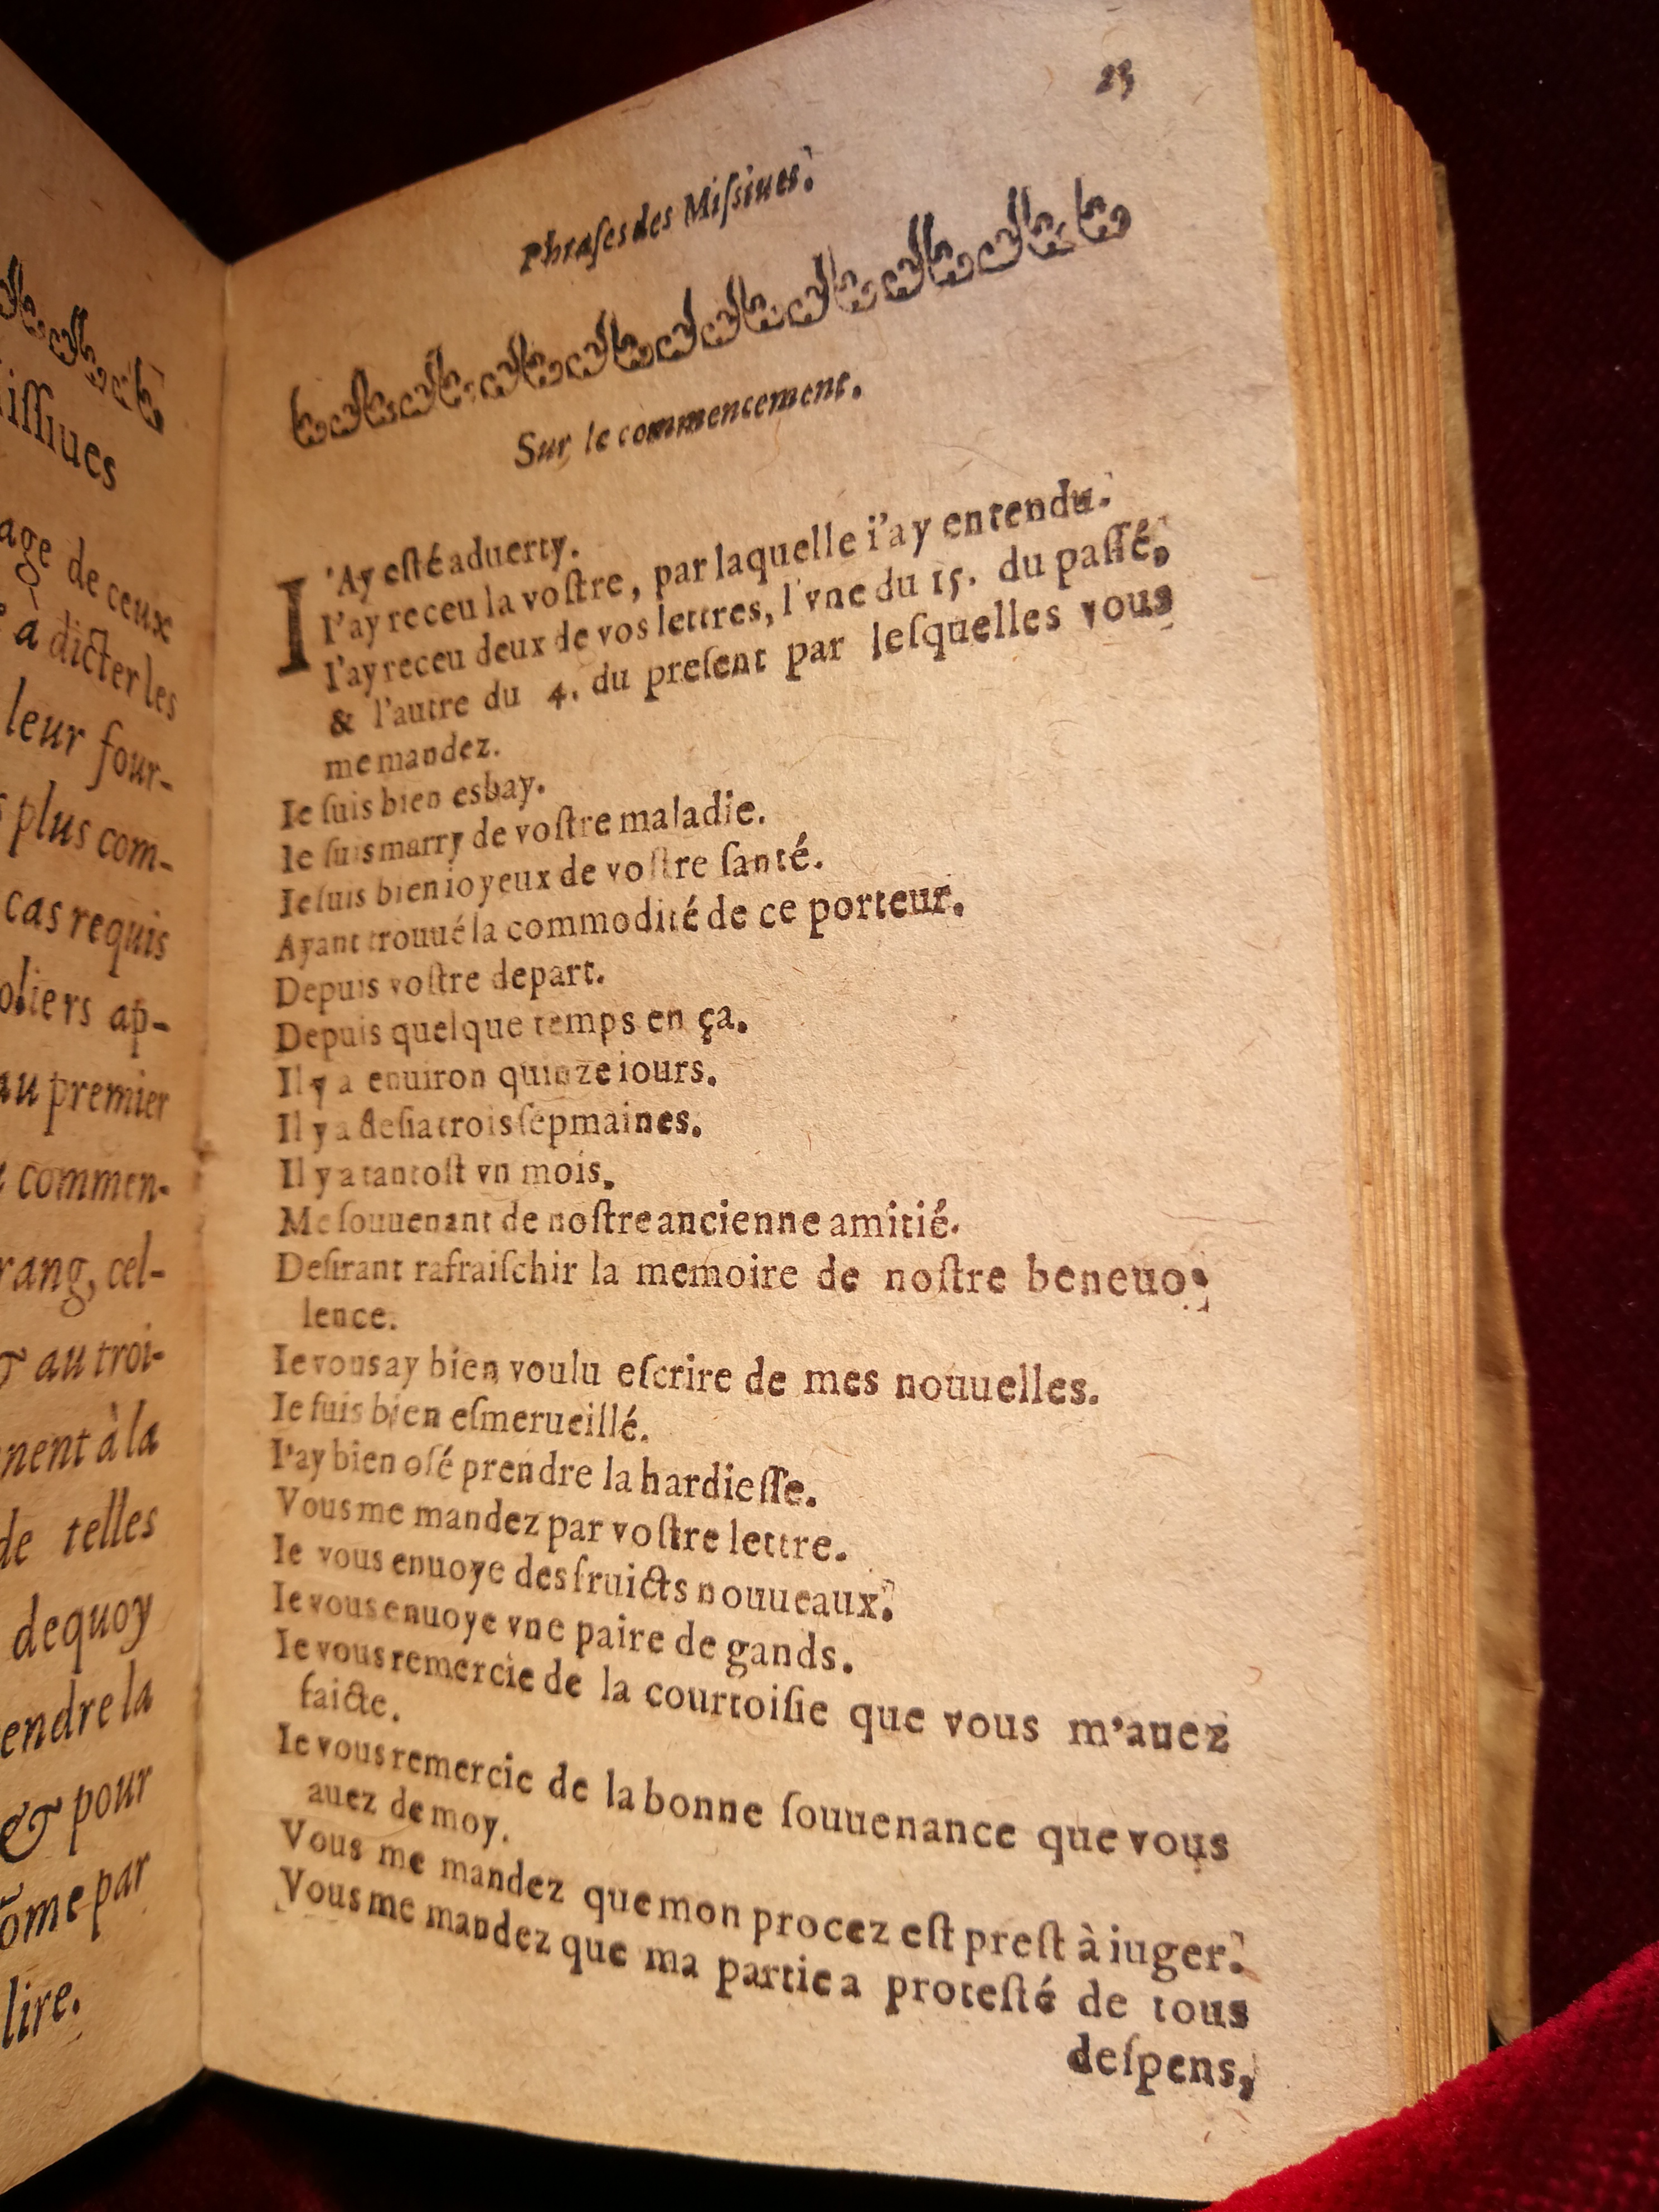 iſſiues
age de ceux
à dicter les
leur four-
plus com-
cas requis
oliers ap-
au premier
commen-
rang, cel-
& au troi-
nent à la
de telles
dequoy
endre la
& pour
õme par
lire.
23
Phraſes des Miſsiues.
Sur le commencement.
I'Ay eſté aduerty.
I'ay receu la voſtre, par laquelle i'ay entendu.
I'ay receu deux de vos lettres, l'vne du 15. du paſſé,
& l'autre du 4. du preſent par leſquelles vous
me mandez.
Ie ſuis bien esbay.
Ie ſuis marry de voſtre maladie.
Ie ſuis bien ioyeux de voſtre ſanté.
Ayant trouué la commodité de ce porteur.
Depuis voſtre depart.
Depuis quelque temps en ça.
Il y a enuiron quinze iours.
Il y a deſia trois ſepmaines.
Il y a tantoſt vn mois.
Me ſouuenant de noſtre ancienne amitié.
Deſirant rafraiſchir la memoire de noſtre beneuo-
lence.
Ie vous ay bien voulu eſcrire de mes nouuelles.
Ie ſuis bien eſmerueillé.
I'ay bien oſé prendre la hardieſſe.
Vous me mandez par voſtre lettre.
Ie vous enuoye des fruicts nouueaux.
Ie vous enuoye vne paire de gands.
Ie vous remercie de la courtoiſie que vous m'auez
faicte.
Ie vous remercie de la bonne ſouuenance que vous
auez de moy.
Vous me mandez que mon procez eſt preſt à iuger.
Vous me mandez que ma partie a proteſté de tous
deſpens,